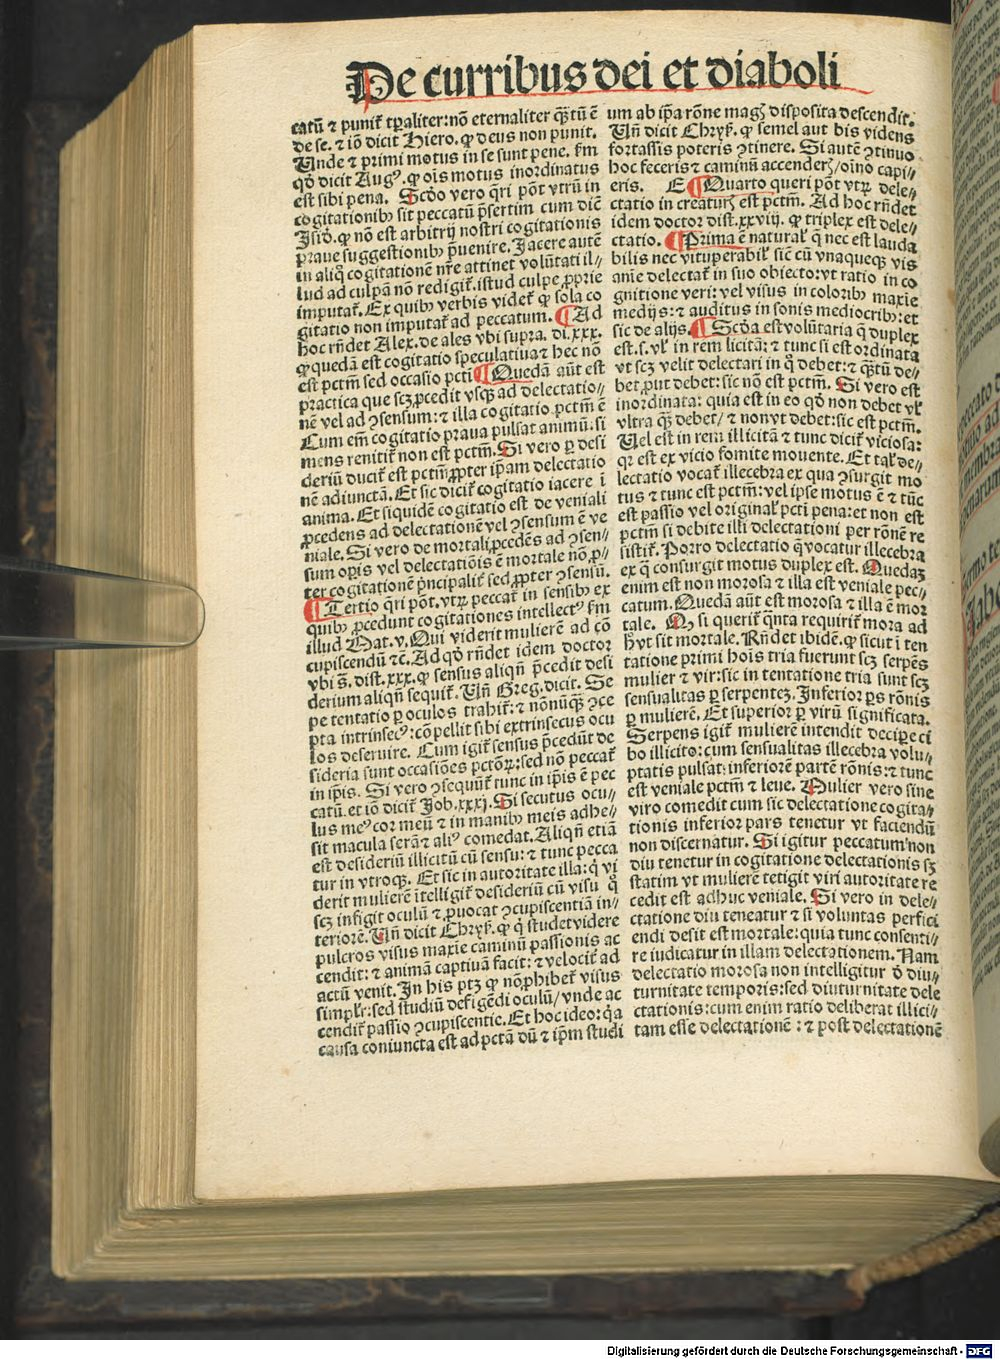 De curribus dei et diaboli
catū ⁊ punit᷑ tꝑaliter: nō eternaliter qꝫtū ē
de se. ⁊ iō dicit Hiero. ꝙ deus non punit.
Unde ⁊ primi motus in se sunt pene. ẜm
qd̄ dicit Augꝰ. ꝙ oīs motus inordinatus
est sibi pena. Scd̄o vero q̄ri pōt vtrū in
cogitationibꝰ sit peccatū p̄sertim cum diē
Isid̄. ꝙ nō est arbitrij nostri cogitationis
praue suggestionibꝰ p̄uenire. Iacere autē
in aliq̄ cogitationē nr̄e attinet volūtati il⸗
lud ad culpā nō redigit᷑. istud culpe ꝓprie
imputat᷑. Ex quibꝰ verbis videt᷑ ꝙ sola co
gitatio non imputat᷑ ad peccatum. ¶ Ad
hoc rn̄det Alex. de ales vbi supra. di. xxx.
ꝙ quedā est cogitatio speculatiua ⁊ hec nō
est pctm̄ sed occasio pcti ¶ Quedā aūt est
practica que scꝫ ꝓcedit vsqꝫ ad delectatio⸗
nē vel ad ꝯsensum: ⁊ illa cogitatio pctm̄ ē
Cum em̄ cogitatio praua pulsat animū: si
mens renitit᷑ non est pctm̄. Si vero ꝑ desi
deriū ducit᷑ est pctm̄ ꝓpter ip̄am delectatio
nē adiunctā. Et sic dicit᷑ cogitatio iacere ī
anima. Et siquidē cogitatio est de veniali
ꝓcedens ad delectationē vel ꝯsensum ē ve
niale. Si vero de mortali ꝓcedēs ad ꝯsen⸗
sum oꝑis vel delectatiōis ē mortale nō ꝓ⸗
ter cogitationē p̄ncipalit᷑ sed ꝓpter ꝯsensū.
¶ Tertio q̄ri pōt. vtꝝ peccat᷑ in sensibꝰ ex
quibꝰ ꝓcedunt cogitationes intellectꝰ ẜm
illud Mat. v. Qui viderit mulierē ad cō
cupiscendū ⁊c̄. Ad qd̄ rn̄det idem doctor
vbi s̄. dist. xxx. ꝙ sensus aliqn̄ p̄cedit desi
derium aliqn̄ sequit᷑. Un̄ Greg. dicit. Se
pe tentatio ꝑ oculos trahit᷑: ⁊ nōnūqꝫ ꝯce
pta intrinsecꝰ: cōpellit sibi extrinsecus ocu
los deseruire. Cum igit᷑ sensus p̄cedūt de
sideria sunt occasiōes pctōꝝ: sed nō peccat᷑
in ip̄is. Si vero ꝯsequūt᷑ tunc in ip̄is ē pec
catū. et iō dicit᷑ Job. xxxj. Si secutus ocu⸗
lus meꝰ cor meū ⁊ in manibꝰ meis adhe⸗
sit macula serā ⁊ aliꝰ comedat. Aliqn̄ etiā
est desideriū illicitū cū sensu: ⁊ tunc pecca
tur in vtroqꝫ. Et sic in autoritate illa: q̇ vi
derit mulierē ītelligit᷑ desideriū cū visu q̇
scꝫ infigit oculū ⁊ ꝓuocat ꝯcupiscentiā in⸗
teriorē. Un̄ dicit Chryẜ. ꝙ q̇ studet videre
pulcros visus maxīe caminū passionis ac
cendit: ⁊ animā captiuā facit: ⁊ velocit᷑ ad
actū venit. In his ptꝫ ꝙ nō ꝓhibet᷑ visus
simpl'r: sed studiū defigēdi oculū/ vnde ac
cendit᷑ passio ꝯcupiscentie. Et hoc ideo: q̄a
causa coniuncta est ad pctā dū ⁊ ip̄m studi
um ab ip̄a rōne magꝫ disposita descendit.
Un̄ dicit Chryẜ. ꝙ semel aut bis videns
fortassis poteris ꝯtinere. Si autē ꝯtinuo
hoc feceris ⁊ caminū accenderꝫ/ oīno capi⸗
eris. E ¶ Quarto queri pōt vtꝝ dele⸗
ctatio in creaturꝫ est pctm̄. Ad hoc rn̄det
idem doctor dist. xxviij. ꝙ triplex est dele⸗
ctatio. ¶ Prima ē natural' q̄ nec est lauda
bilis nec vituperabil' sic cū vnaqueqꝫ vis
anīe delectat᷑ in suo obiecto: vt ratio in co
gnitione veri: vel visus in coloribꝰ maxīe
medijs: ⁊ auditus in sonis mediocribꝰ: et
sic de alijs. ¶ Scd̄a est volūtaria q̄ duplex
est. s. vl' in rem licitā: ⁊ tunc si est ordinata
vt scꝫ velit delectari in q̇ debet: ⁊ qꝫtū de⸗
bet ꝓut debet: sic nō est pctm̄. Si vero est
inordinata: quia est in eo qd̄ non debet vl'
vltra qꝫ debet/ ⁊ non vt debet: sic est pctm̄.
Uel est in rem illicitā ⁊ tunc dicit᷑ viciosa:
qꝛ est ex vicio fomite mouente. Et tal' de⸗
lectatio vocat᷑ illecebra ex qua ꝯsurgit mo
tus ⁊ tunc est pctm̄: vel ipse motus ē ⁊ tūc
est passio vel original' pcti pena: et non est
pctm̄ si debite illi delectationi per rōnē re
sistit᷑. Porro delectatio q̄ vocatur illecebra
ex q̄ consurgit motus duplex est. Quedaꝫ
enim est non morosa ⁊ illa est veniale pec⸗
catum. Quedā aūt est morosa ⁊ illa ē mor
tale. Qꝫ si querit᷑ q̄nta requirit᷑ mora ad
hꝰ vt sit mortale. Rn̄det ibidē. ꝙ sicut ī ten
tatione primi hoīs tria fuerunt scꝫ serpēs
mulier ⁊ vir: sic in tentatione tria sunt scꝫ
sensualitas ꝑ serpenteꝫ. Inferior ꝑs rōnis
ꝑ mulierē. Et superior ꝑ virū significata.
Serpens igit᷑ mulierē intendit decipe ci
bo illicito: cum sensualitas illecebra volu⸗
ptatis pulsat: inferiorē partē rōnis: ⁊ tunc
est veniale pctm̄ ⁊ leue. Mulier vero sine
viro comedit cum sic delectatione cogita⸗
tionis inferior pars tenetur vt faciendū
non discernatur. Si igitur peccatum non
diu tenetur in cogitatione delectationis sꝫ
statim vt mulierē tetigit viri autoritate re
cedit est adhuc veniale. Si vero in dele⸗
ctatione diu teneatur ⁊ si voluntas perfici
endi desit est mortale: quia tunc consenti⸗
re iudicatur in illam delectationem. Nam
delectatio morosa non intelligitur d̄ diu⸗
turnitate temporis: sed diuturnitate dele
ctationis: cum enim ratio deliberat illici⸗
tam esse delectationē: ⁊ post delectationē
Digitalisierung gefördert durch die Deutsche Forschungsgemeinschaft - DFG